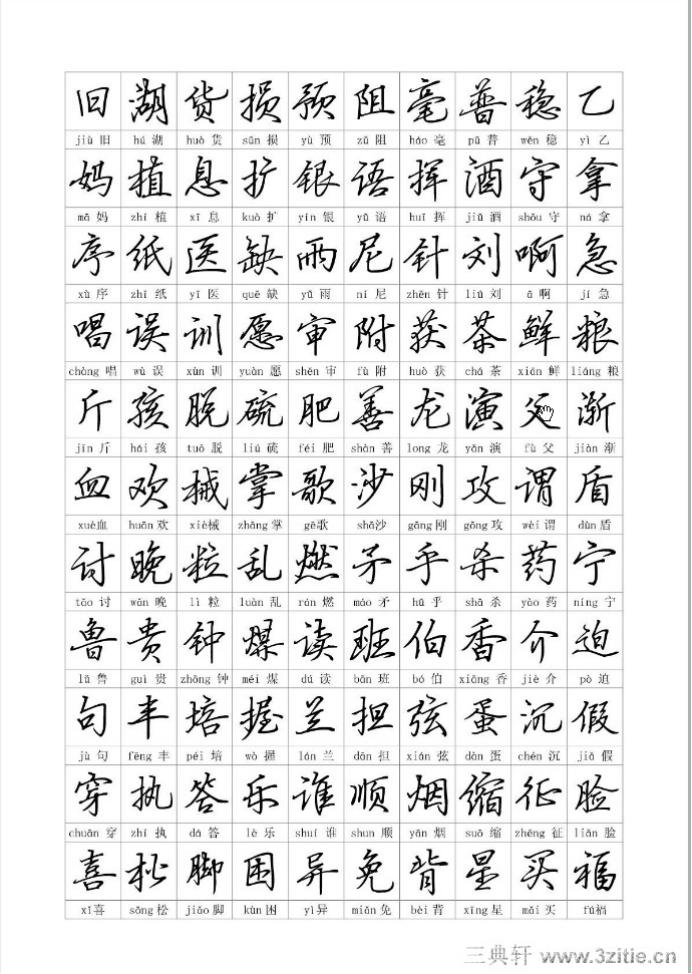 旧 湖 货 损 预 阻 毫 普 稳 乙
jiù 旧 hú 湖 huò 货 sǔn 损 yù 预 zǔ 阻 háo 毫 pǔ 普 wěn 稳 yǐ 乙
妈 植 息 扩 银 语 挥 酒 守 拿
mā 妈 zhí 植 xī 息 kuò 扩 yín 银 yǔ 语 huī 挥 jiǔ 酒 shǒu 守 ná 拿
序 纸 医 缺 雨 尼 针 刘 啊 急
xù 序 zhǐ 纸 yī 医 quē 缺 yǔ 雨 ní 尼 zhēn 针 liú 刘 ā 啊 jí 急
唱 误 训 愿 审 附 获 茶 鲜 粮
chàng 唱 wù 误 xùn 训 yuàn 愿 shěn 审 fù 附 huò 获 chá 茶 xiān 鲜 liáng 粮
斤 孩 脱 硫 肥 善 龙 演 父 渐
jīn 斤 hái 孩 tuō 脱 liú 硫 féi 肥 shàn 善 long 龙 yǎn 演 fù 父 jiàn 渐
血 欢 械 掌 歌 沙 刚 攻 谓 盾
xuè血 huān 欢 xiè械 zhǎng 掌 gē歌 shā沙 gāng 刚 gōng 攻 wèi 谓 dùn 盾
讨 晚 粒 乱 燃 矛 乎 杀 药 宁
tǎo 讨 wǎn 晚 lì 粒 luàn 乱 rán 燃 máo 矛 hū 乎 shā 杀 yào 药 níng 宁
鲁 贵 钟 煤 读 班 伯 香 介 迫
lǔ 鲁 guì 贵 zhōng 钟 méi 煤 dú 读 bān 班 bó 伯 xiāng 香 jiè 介 pò 迫
句 丰 培 握 兰 担 弦 蛋 沉 假
jù 句 fēng 丰 péi 培 wò 握 lán 兰 dān 担 xián 弦 dàn 蛋 chén 沉 jiǎ 假
穿 执 答 乐 谁 顺 烟 缩 征 脸
chuān 穿 zhí 执 dá 答 lè 乐 shuí 谁 shun 顺 yān 烟 suō 缩 zhēng 征 liǎn 脸
喜 松 脚 困 异 免 背 星 买 福
xǐ喜 sōng 松 jiǎo 脚 kùn 困 yì异 miǎn 免 bèi 背 xīng 星 mǎi 买 fú福
三典轩 www.3zitie.cn